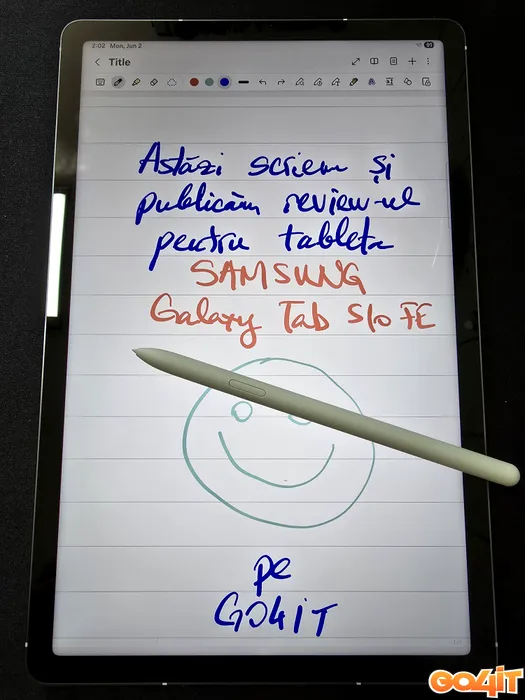 2:02 Mon, Jun 2
91
Title
Astăzi scriem și
publicăm review-ul
pentru tableta
SAMSUNG
Galaxy Tab S10 FE
pe
GO4IT
GO4IT